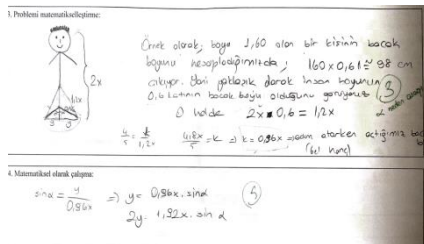 3. Problemi matematikselleştirme:
Örnek olarak; boyu 1,60 olan bir kişinin bacak
boyunu hesapladığımızda; 160 x 0,61 ≅ 98 cm
çıkıyor. Yani yaklaşık olarak insan boyunun
0,6 katının bacak boyu olduğunu görüyoruz
3
O halde 2x.0,6 = 1,2x
2x
1,2x
4/5 = k/1,2x 4,8x/5 = k => k = 0,96x => adım atarken açtığımız
4. Matematiksel olarak çalışma:
sinα = y/0,96x => y = 0,96x.sinα
2y = 1,92x.sin α